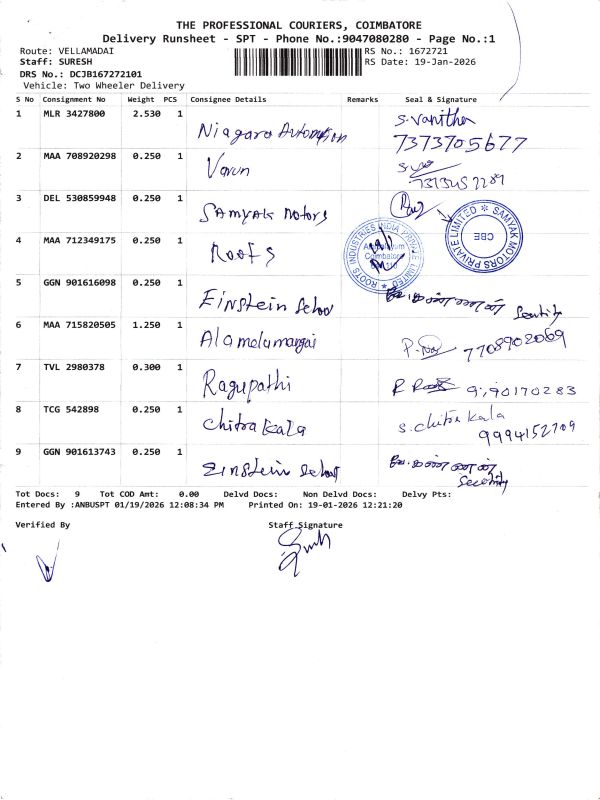 THE PROFESSIONAL COURIERS, COIMBATORE
Delivery Runsheet - SPT - Phone No.:9047080280 - Page No.:1
Route: VELLAMADAI RS No.: 1672721
Staff: SURESH RS Date: 19-Jan-2026
DRS No.: DCJB167272101
Vehicle: Two Wheeler Delivery
S No Consignment No Weight PCS Consignee Details Remarks Seal & Signature
1 MLR 3427800 2.530 1 Niagara Automation S.Vanitha
7373705677
2 MAA 708920298 0.250 1 Varun
3 DEL 530859948 0.250 1 SAMYAK MOTORS
SAMYAK MOTORS PRIVATE LIMITED
CBE
4 MAA 712349175 0.250 1 Roots
ROOTS INDUSTRIES INDIA PRIVATE LIMITED
Coimbatore
5 GGN 901616098 0.250 1 Einstein School
Security
6 MAA 715820505 1.250 1 Alamelumangai
7708902069
7 TVL 2980378 0.300 1 Ragupathi
8 TCG 542898 0.250 1 Chitra Kala S. Chitra Kala
9994152709
9 GGN 901613743 0.250 1 Einstein School
Security
Tot Docs: 9 Tot COD Amt: 0.00 Delvd Docs: Non Delvd Docs: Delvy Pts:
Entered By :ANBUSPT 01/19/2026 12:08:34 PM Printed On: 19-01-2026 12:21:20
Verified By Staff Signature